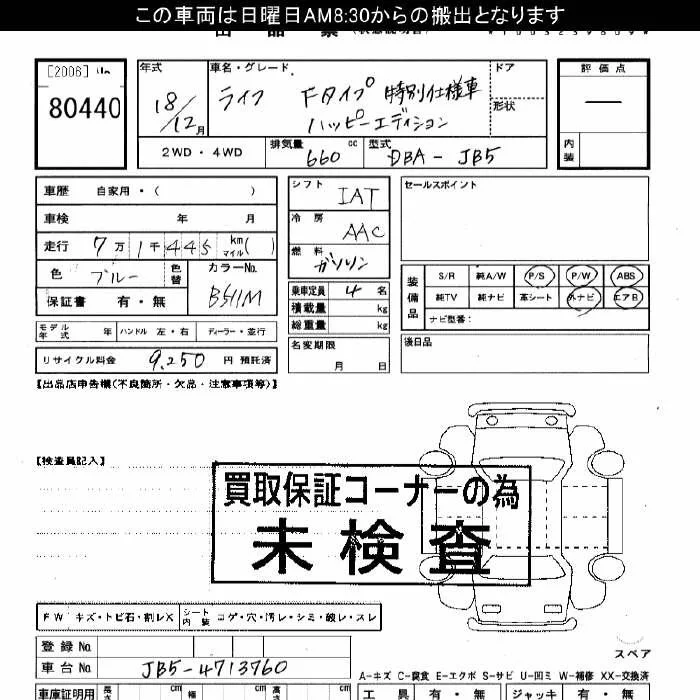 この車両は日曜日AM8:30からの搬出となります
出品票
[2006]
80440
年式 車名・グレード ドア
18/12月 ライフ Fタイプ 特別仕様車
ハッピーエディション
形状
評価点
—
内装
2WD・4WD 排気量 660 cc 型式 DBA-JB5
車歴 自家用・( )
車検 年 月
走行 7万1千445 km マイル( )
色 ブルー 色替 カラーNo. B511M
保証書 有・無
シフト IAT
冷房 AAC
燃料 ガソリン
乗車定員 4名
積載量 kg
総重量 kg
セールスポイント
装備品 S/R 純A/W P/S P/W ABS
純TV 純ナビ 革シート 外ナビ エアB
ナビ型番:
モデル年式 年 ハンドル 左・右 ディーラー・並行
リサイクル料金 9,250 円 預託済
名変期限 月 日
後日品
【出品店申告欄(不良箇所・欠品・注意事項等)】
【検査員記入】
買取保証コーナーの為
未検査
FW キズ・トビ石・割レX シート内装 コゲ・穴・汚レ・シミ・破レ・スレ
スペア
登録No.
車台No. JB5-4713760
A-キズ C-腐食 E-エクボ S-サビ U-凹ミ W-補修 XX-交換済
車庫証明用 長さ cm 幅 cm 高さ cm
工具 有・無 ジャッキ 有・無